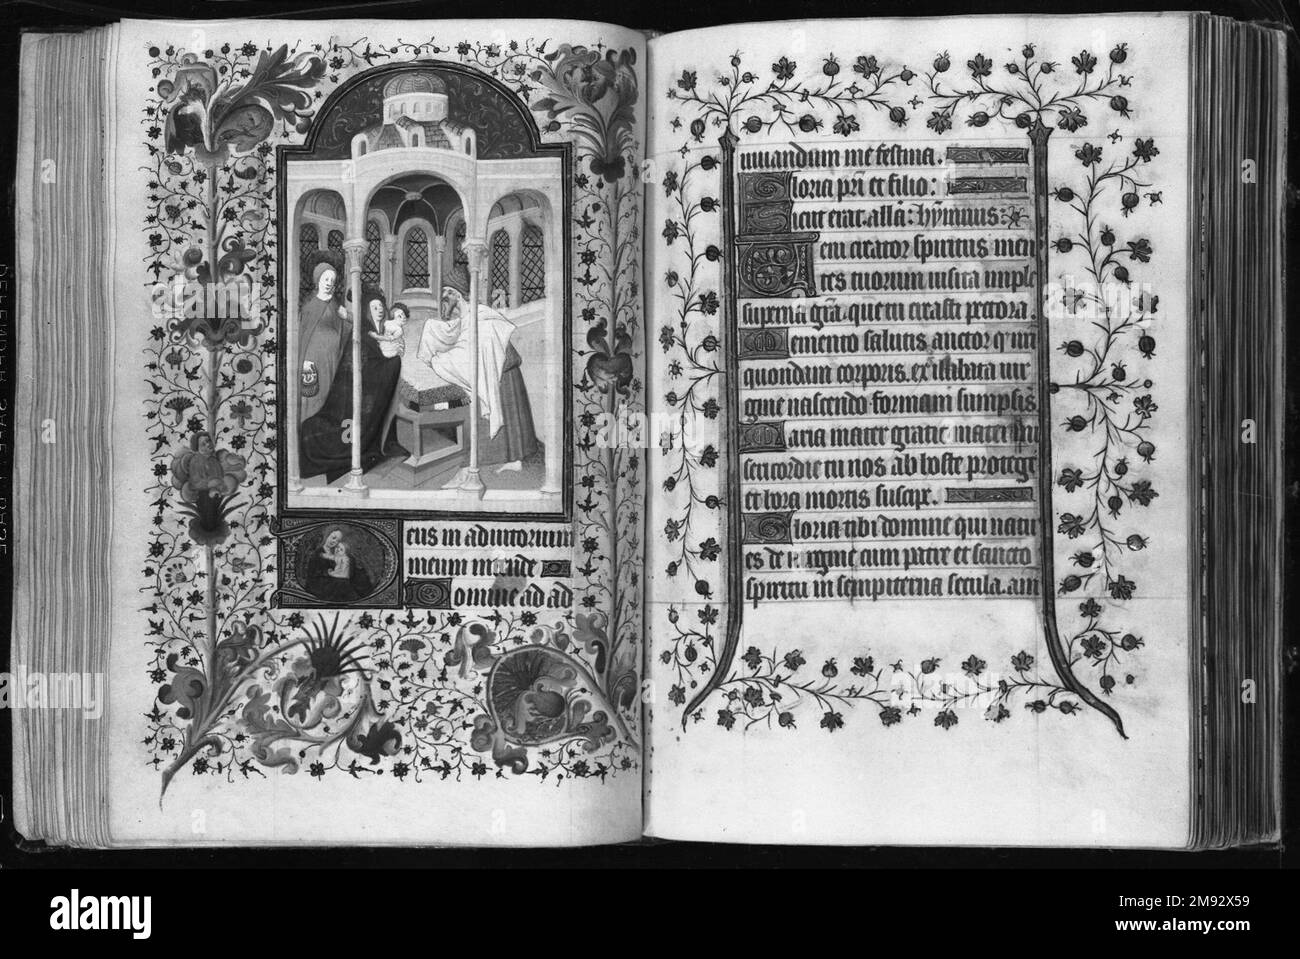 eus in adiutorium
meum intende
omine ad ad
iuuandum me festina.
Gloria pri et filio:
Sicut erat. alla: hymnus:
Veni creator spiritus men
tes tuorum visita imple
superna gra. que tu creasti pectora.
Memento salutis auctor q nri
quondam corporis. ex illibata vir
gine nascendo formam sumpsis
Maria mater gratie mater mi
sericordie tu nos ab hoste protege
et hora mortis suscipe.
Gloria tibi domine qui natus
es de virgine cum patre et sancto
spiritu in sempiterna secula. am
alamy
Image ID: 2M92X59
www.alamy.com